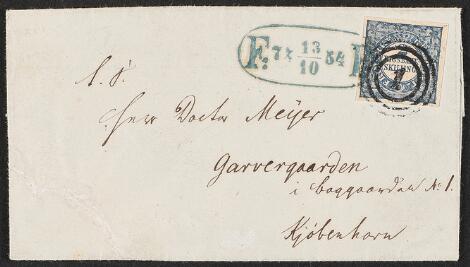 F: 7½ 13/10 54 F
SKILLING
S. T.
Herr Doctor Meyer
Garvergaarden
i baggaarden No 1.
Kjøbenhavn